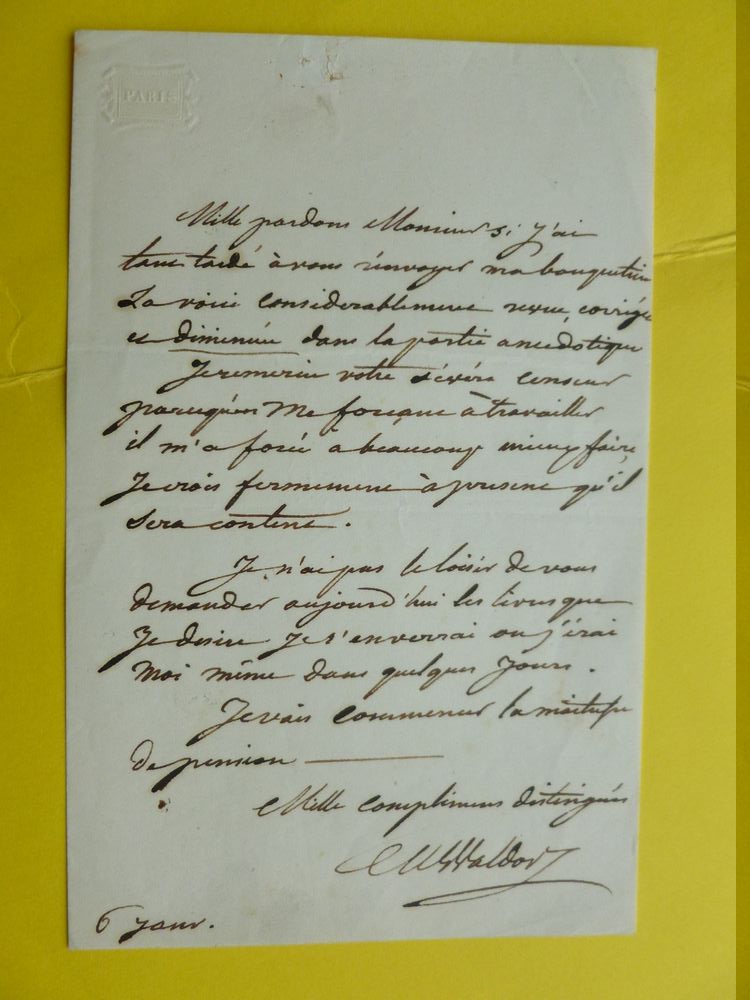 PARIS
Mille pardons Monsieur si j'ai
tant tardé à vous renvoyer ma bouquetière
La voici considérablement revue, corrigée
et diminuée dans la partie anecdotique
Je remercie votre sévère censeur
parcequ'en me forçant à travailler
il m'a forcé a beaucoup mieux faire,
Je crois fermement à present qu'il
sera content.
Je n'ai pas le loisir de vous
demander aujourd'hui les livres que
Je desire je enverrai ou j'irai
Moi même dans quelques Jours.
Je vais commencer la maitresse
de pension
Mille complimens distingués
M Waldor
6 Janv.